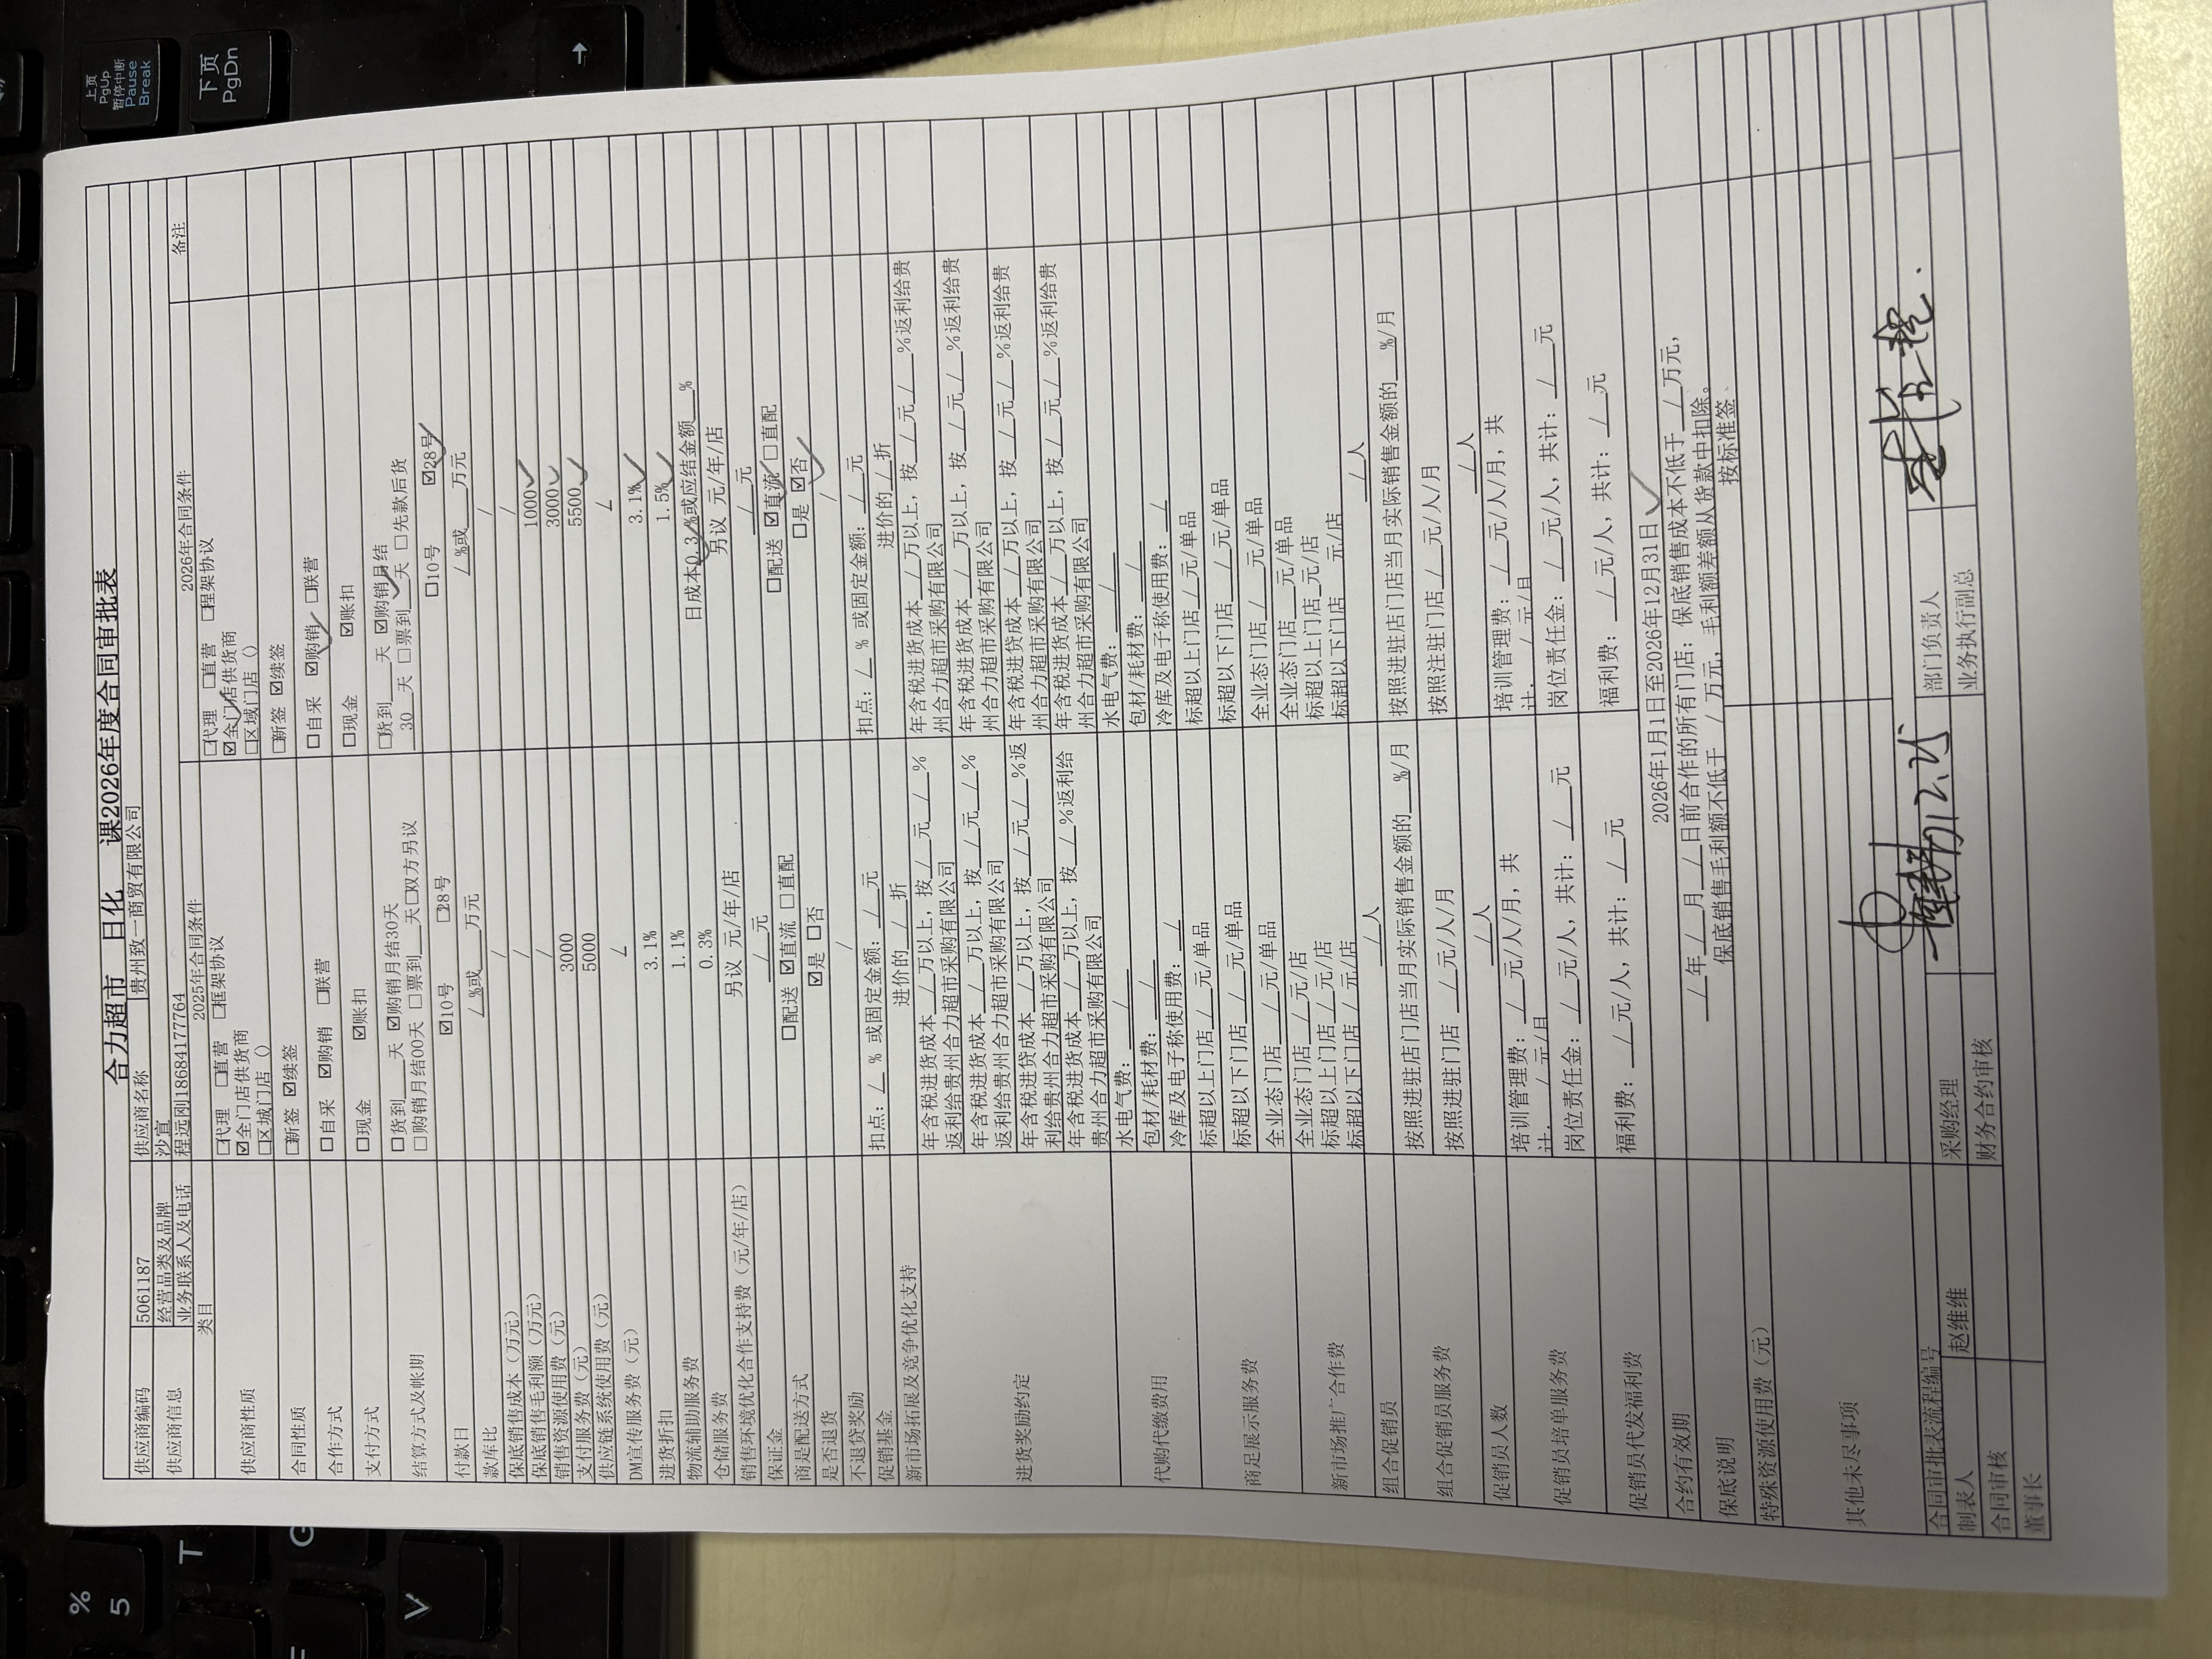 合力超市 日化 课2026年度合同审批表
供应商编码 5061187 供应商名称 贵州致一商贸有限公司
供应商信息 经营品类及品牌 沙宣
业务联系人及电话 程远刚18684177764
类目 2025年合同条件 2026年合同条件 备注
供应商性质 □代理 □直营 □框架协议 □代理 □直营 □程架协议
☑全门店供货商 ☑全门店供货商
□区城门店（） □区域门店（）
合同性质 □新签 ☑续签 □新签 ☑续签
合作方式 □自采 ☑购销 □联营 □自采 ☑购销 □联营
支付方式 □现金 ☑账扣 □现金 ☑账扣
结算方式及帐期 □货到___天 ☑购销月结30天 □货到___天 ☑购销月结
□购销月结00天 □票到___天□双方另议 30 天 □票到___天 □先款后货
付款日 ☑10号 □28号 □10号 ☑28号
款库比 /%或___万元 /%或___万元
保底销售成本（万元） / /
保底销售毛利额（万元） / /
销售资源使用费（元） / 1000
支付服务费（元） 3000 3000
供应链系统使用费（元） 5000 5500
DM宣传服务费（元） / /
进货折扣 3.1% 3.1%
物流辅助服务费 1.1% 1.5%
仓储服务费 0.3% 日成本0.3%或应结金额___%
销售环境优化合作支持费（元/年/店） 另议 元/年/店 另议 元/年/店
保证金 /元 /元
商是配送方式 □配送 ☑直流 □直配 □配送 ☑直流 □直配
是否退货 ☑是 □否 □是 ☑否
不退贷奖励 / /
促销基金 扣点：/ % 或固定金额：/元 扣点：/ % 或固定金额：/元
新市场拓展及竞争优化支持 进价的/折 进价的/折
进货奖励约定 年含税进货成本/万以上，按/元/% 年含税进货成本/万以上，按/元/%返利给贵
返利给贵州合力超市采购有限公司 州合力超市采购有限公司
年含税进货成本/万以上，按/元/% 年含税进货成本/万以上，按/元/%返利给贵
返利给贵州合力超市采购有限公司 州合力超市采购有限公司
年含税进贷成本/万以上，按/元/%返 年含税进贷成本/万以上，按/元/%返利给贵
利给贵州合力超市采购有限公司 州合力超市采购有限公司
年含税进货成本/万以上，按/%返利给 年含税进货成本/万以上，按/元/%返利给贵
贵州合力超市采购有限公司 州合力超市采购有限公司
代购代缴费用 水电气费：/ 水电气费：/
包材/耗材费：/ 包材/耗材费：/
冷库及电子称使用费：/ 冷库及电子称使用费：/
商足展示服务费 标超以上门店/元/单品 标超以上门店/元/单品
标超以下门店/元/单品 标超以下门店/元/单品
全业态门店/元/单品 全业态门店/元/单品
新市场推广合作费 全业态门店/元/店 全业态门店 元/单品
标超以上门店/元/店 标超以上门店 元/店
标超以下门店/元/店 标超以下门店 元/店
组合促销员 /人 /人
组合促销员服务费 按照进驻店门店当月实际销售金额的 %/月 按照进驻店门店当月实际销售金额的 %/月
按照进驻门店 /元/人/月 按照注驻门店/元/人/月
促销员人数 /人 /人
促销员培单服务费 培训管理费：/元/人/月，共 培训管理费：/元/人/月，共
计：/元/月 计：/元/月
岗位责任金：/元/人，共计：/元 岗位责任金：/元/人，共计：/元
促销员代发福利费 福利费：/元/人，共计：/元 福利费：/元/人，共计：/元
合约有效期 2026年1月1日至2026年12月31日
保底说明 /年/月/日前合作的所有门店：保底销售成本不低于/万元，
保底销售毛利额不低于 / 万元，毛利额差额从货款中扣除。
特殊资源使用费（元） 按标准签
其他未尽事项
合同审批表流程编号
制表人 赵维维 采购经理 部门负责人
合同审核 财务合约审核 业务执行副总
董事长
上页
PgUp
暂停中断
Pause
Break
下页
PgDn
→
%
5
T
G
V